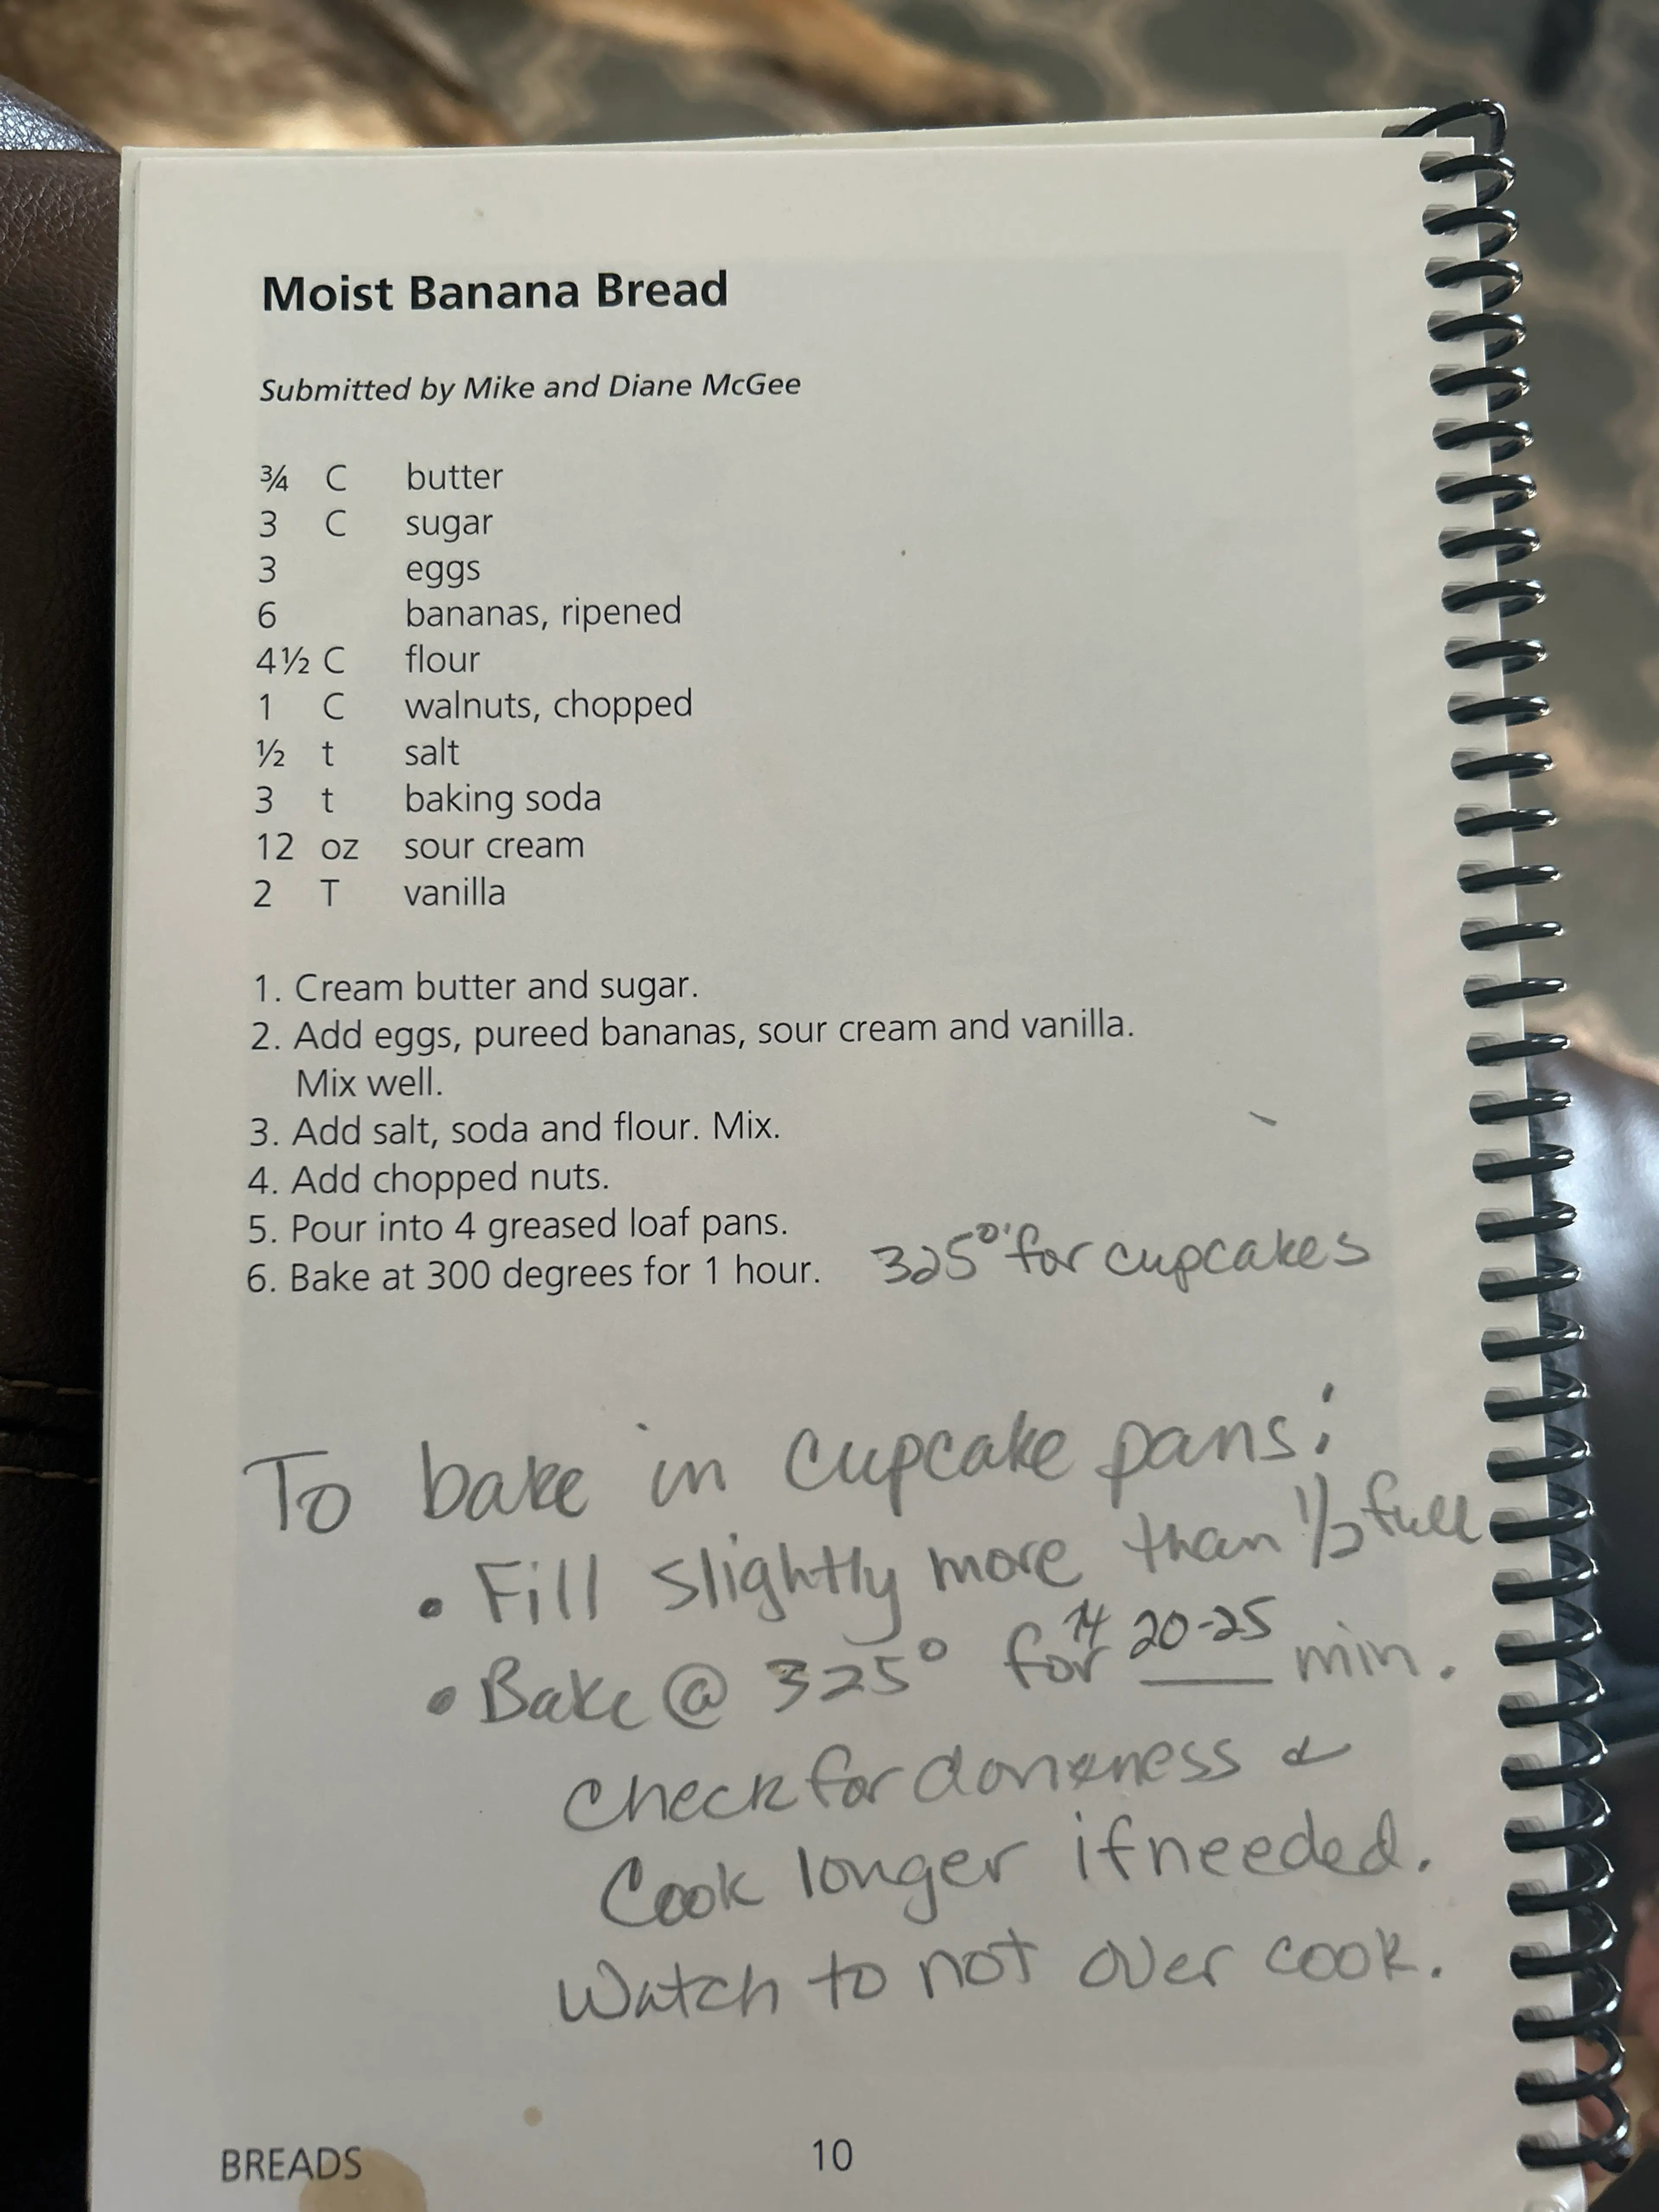 Moist Banana Bread
Submitted by Mike and Diane McGee
¾ C butter
3 C sugar
3 eggs
6 bananas, ripened
4½ C flour
1 C walnuts, chopped
½ t salt
3 t baking soda
12 oz sour cream
2 T vanilla
1. Cream butter and sugar.
2. Add eggs, pureed bananas, sour cream and vanilla.
Mix well.
3. Add salt, soda and flour. Mix.
4. Add chopped nuts.
5. Pour into 4 greased loaf pans.
6. Bake at 300 degrees for 1 hour. 325° for cupcakes
To bake in cupcake pans:
• Fill slightly more than ½ full
• Bake @ 325° for 20-25 min.
Check for doneness &
Cook longer if needed.
Watch to not over cook.
BREADS 10